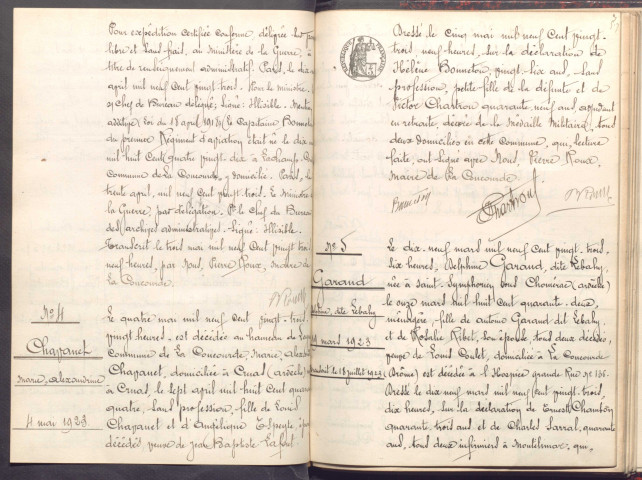 Pour expédition certifiée conforme, délivrée sur papier
libre et sans frais, au Ministère de la Guerre, à
titre de renseignement administratif. Paris, le dix
avril mil neuf cent vingt trois. Pour le ministre
s/ Chef de Bureau délégué; signé: Illisible. Mention
(Loi du 18 avril 1918) le Capitaine Bonneton
du premier Régiment d'aviation était né le dix
mil huit cent quatre vingt dix à
Commune de La Coucourde, y domicilié. Paris, le
trente avril mil neuf cent vingt trois. Le Ministre de
la Guerre, par délégation. P. le Chef du Bureau
des archives administratives. Signé: Illisible.
Transcrit le trois mai mil neuf cent vingt trois
neuf heures, par Nous, Pierre Roux, maire de
La Coucourde.
N° 4
Chapanet
Marie, Alexandrine
4 mai 1923
Le quatre mai mil neuf cent vingt-trois
vingt heures, est décédée au hameau de
commune de La Coucourde, Marie, Alexandrine
Chapanet, domiciliée à Cruas (Ardèche)
à Cruas, le sept avril mil huit cent quarante
quatre, sans profession, fille de Louis
Chapanet et d'Angélique
décédés, veuve de Jean Baptiste Lafont.
5
RÉPUBLIQUE FRANÇAISE
Dressé le cinq mai mil neuf cent vingt-
trois, neuf heures, sur la déclaration de
Hélène Bonneton, vingt-six ans, sans
profession, petite-fille de la défunte et de
Victor Chartron quarante neuf ans, adjudant
en retraite, décoré de la Médaille Militaire, tous
deux domiciliés en cette Commune, qui, lecture
faite, ont signé avec Nous, Pierre Roux,
maire de La Coucourde.
Bonneton
Chartron
N° 5
Garaud
dite Lébahy
19 mars 1923
Transcrit le 18 juillet 1923
Le dix-neuf mars mil neuf cent vingt-trois,
six heures, Delphine Garaud, dite Lébahy,
née à Saint-Symphorien sous Chomérac (Ardèche)
le onze mars mil huit cent quarante-deux,
ménagère, fille de Antoine Garaud dit Lébahy,
et de Rosalie Ribet, son épouse, tous deux décédés,
veuve de Louis Coulet, domiciliée à La Coucourde
(Drôme) est décédée à l'Hospice grande Rue N° 136.
Dressé le dix neuf mars mil neuf cent vingt-trois,
dix heures, sur la déclaration de Ernest Chambon
quarante trois ans et de Charles Sarral, quarante
ans, tous deux infirmiers à Montélimar, qui,